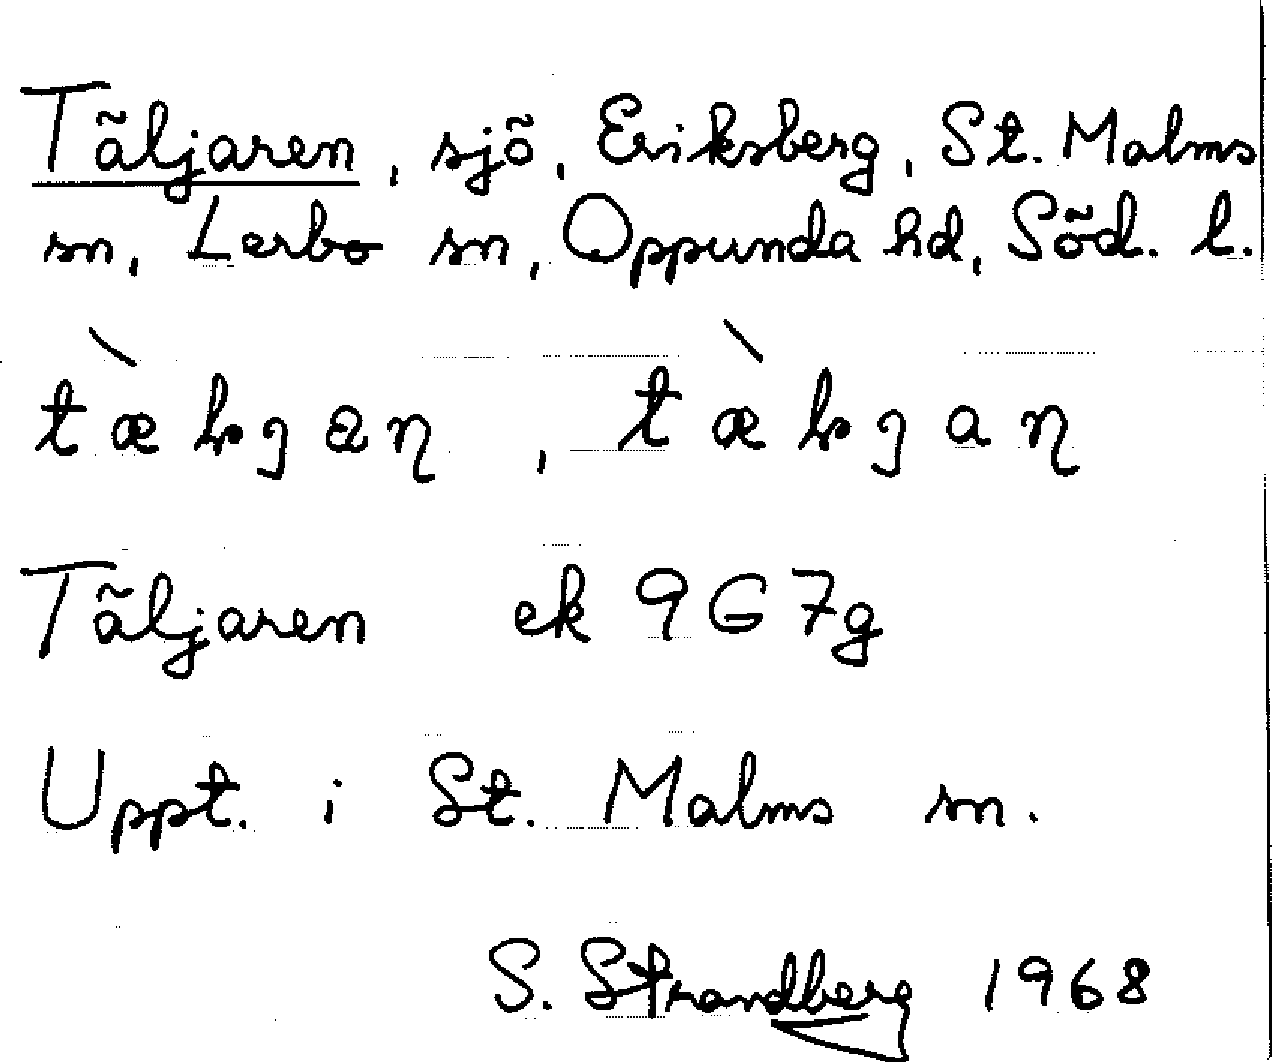 Täljaren, sjö, Eriksberg, St. Malms
sn, Lerbo sn, Oppunda hd, Söd. l.
Täljaren ek 9G7g
Uppt. i St. Malms sn.
S. Strandberg 1968